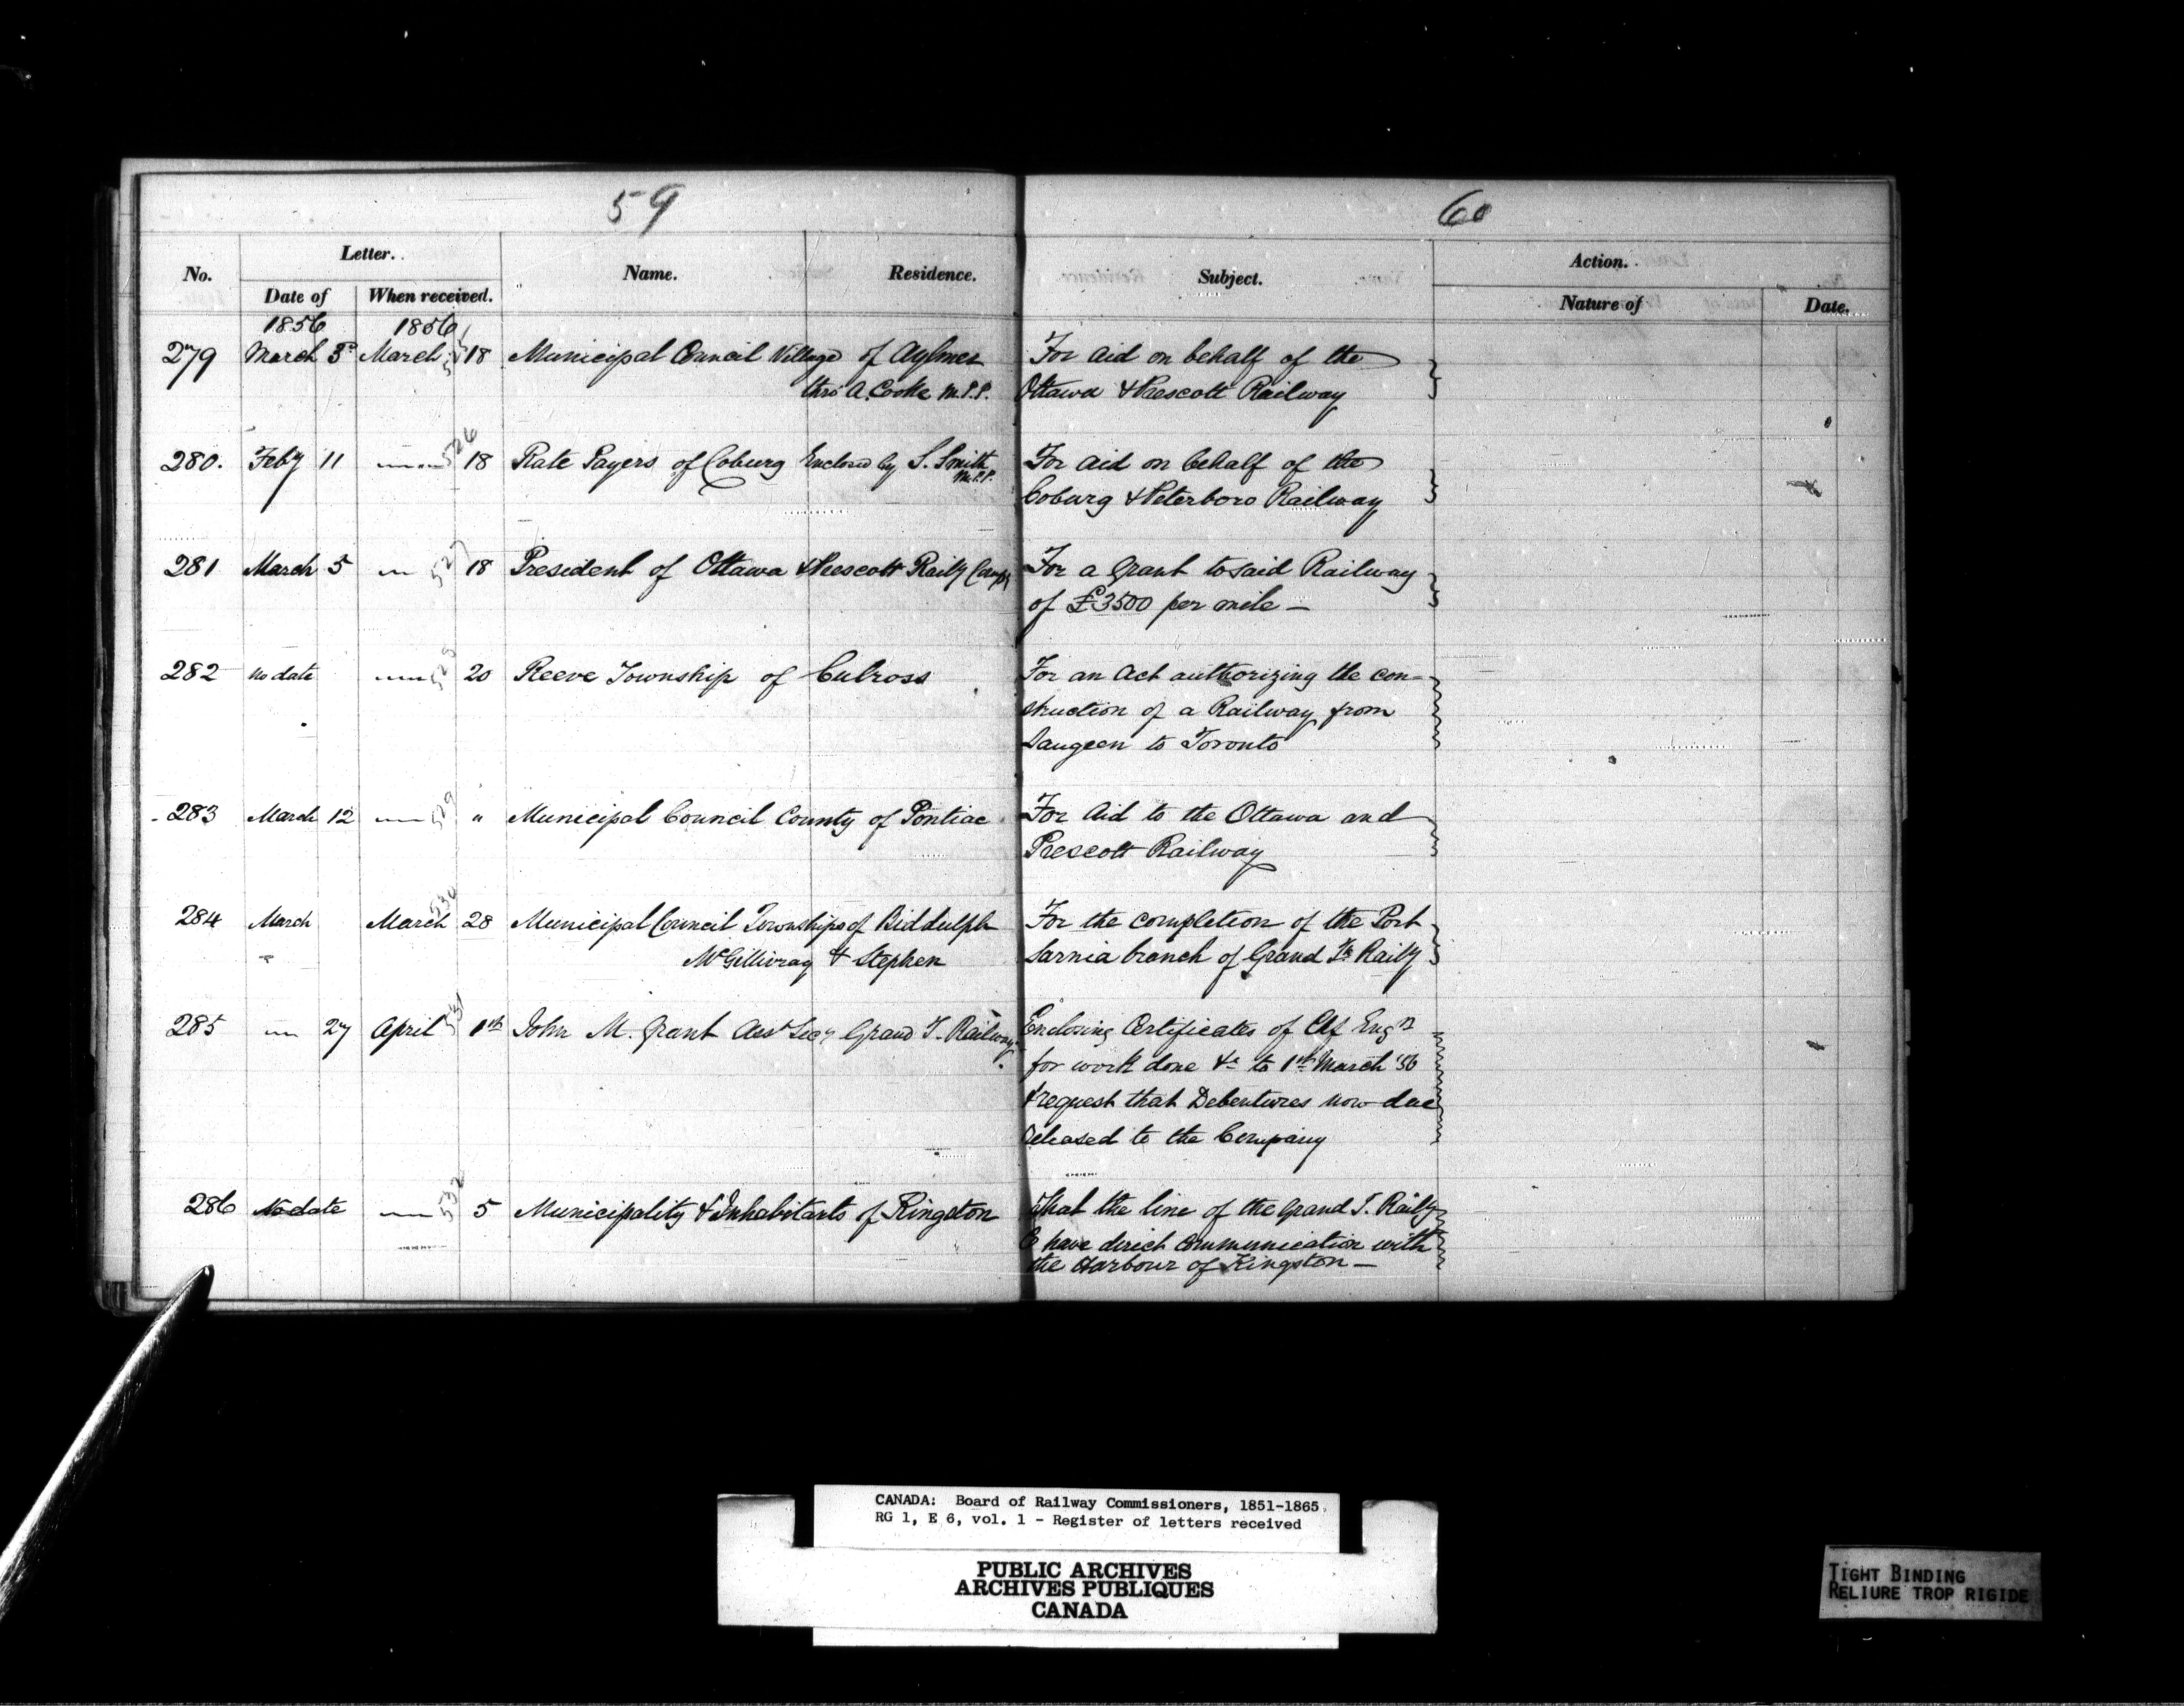 59
60
No.
Letter.
Name.
Residence.
Subject.
Action.
Date of
When received.
Nature of
Date.
1856
1856
279 March 3d March 18 Municipal Council Village of Aylmer For Aid on behalf of the
thro' A. Cooke M.P.P. Ottawa & Prescott Railway
280. Feby 11 526 18 Rate Payers of Coburg Enclosed by S. Smith For Aid on behalf of the
M.P.P. Coburg & Peterboro Railway
281 March 5 527 18 President of Ottawa & Prescott Raily Compy For a grant to said Railway
of £3500 per mile —
282 No date 528 20 Reeve Township of Culross For an Act authorizing the con-
struction of a Railway from
Saugeen to Toronto
283 March 12 529 " Municipal Council County of Pontiac For Aid to the Ottawa and
Prescott Railway
284 March March 530 28 Municipal Council Townships of Biddulph For the completion of the Port
McGillivray & Stephen Sarnia branch of Grand Tk Raily
285 27 April 531 1st John M. Grant Asst Secy Grand T. Railway Enclosing Certificates of Cf Engr
for work done &c to 1st March '56
& request that Debentures now due
released to the Company
286 No date 532 5 Municipality & Inhabitants of Kingston That the line of the Grand T. Raily
have direct communication with
the Harbour of Kingston —
CANADA: Board of Railway Commissioners, 1851-1865
RG 1, E 6, vol. 1 - Register of letters received
PUBLIC ARCHIVES
ARCHIVES PUBLIQUES
CANADA
TIGHT BINDING
RELIURE TROP RIGIDE